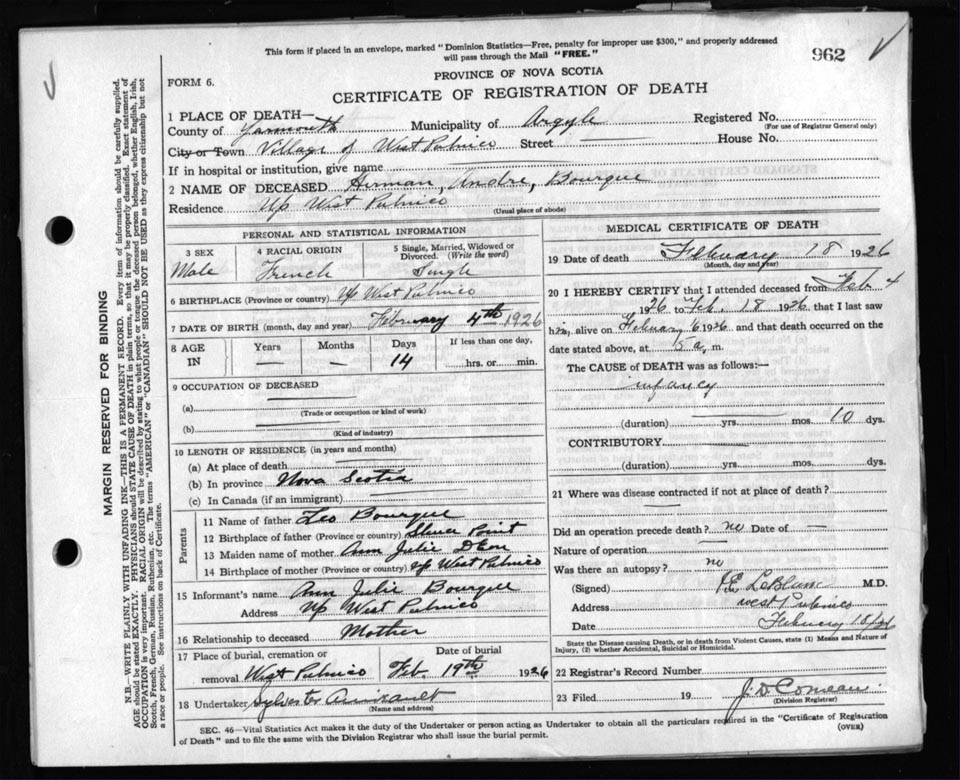 This form if placed in an envelope, marked "Dominion Statistics—Free, penalty for improper use $300," and properly addressed
will pass through the Mail "FREE."
962
FORM 6.
PROVINCE OF NOVA SCOTIA
CERTIFICATE OF REGISTRATION OF DEATH
1 PLACE OF DEATH—
Registered No.
(For use of Registrar General only)
County of Yarmouth Municipality of Argyle
City or Town Village of West Pubnico Street House No.
If in hospital or institution, give name
2 NAME OF DECEASED Herman, Andre, Bourque
Residence Up West Pubnico
(Usual place of abode)
PERSONAL AND STATISTICAL INFORMATION
3 SEX Male
4 RACIAL ORIGIN French
5 Single, Married, Widowed or Divorced. (Write the word) Single
6 BIRTHPLACE (Province or country) Up West Pubnico
7 DATE OF BIRTH (month, day and year) February 4th 1926
8 AGE IN Years — Months — Days 14 If less than one day, hrs. or min.
9 OCCUPATION OF DECEASED
(a)
(Trade or occupation or kind of work)
(b)
(Kind of industry)
10 LENGTH OF RESIDENCE (in years and months)
(a) At place of death
(b) In province Nova Scotia
(c) In Canada (if an immigrant)
Parents
11 Name of father Leo Bourque
12 Birthplace of father (Province or country) Point
13 Maiden name of mother Ann Julie D'Eon
14 Birthplace of mother (Province or country) Up West Pubnico
15 Informant's name Ann Julie Bourque
Address Up West Pubnico
16 Relationship to deceased Mother
17 Place of burial, cremation or removal West Pubnico Date of burial Feb. 19th 1926
18 Undertaker Sylvester Amirault
(Name and address)
MEDICAL CERTIFICATE OF DEATH
19 Date of death February 18 1926
(Month, day and year)
20 I HEREBY CERTIFY that I attended deceased from Feb 4
1926 to Feb. 18 1926 and that I last saw
him alive on February 6 1926 and that death occurred on the
date stated above, at 5 a. m.
The CAUSE of DEATH was as follows:—
infancy
(duration) yrs. mos. 10 dys.
CONTRIBUTORY
(duration) yrs. mos. dys.
21 Where was disease contracted if not at place of death?
Did an operation precede death? no Date of —
Nature of operation
Was there an autopsy? no
(Signed) LeBlanc M.D.
Address West Pubnico
Date February 18
State the Disease causing Death, or in death from Violent Causes, state (1) Means and Nature of
Injury, (2) whether Accidental, Suicidal or Homicidal.
22 Registrar's Record Number
23 Filed 19 J. D. Comeau
(Division Registrar)
SEC. 46—Vital Statistics Act makes it the duty of the Undertaker or person acting as Undertaker to obtain all the particulars required in the "Certificate of Registration
of Death" and to file the same with the Division Registrar who shall issue the burial permit.
(OVER)
MARGIN RESERVED FOR BINDING
N.B.—WRITE PLAINLY WITH UNFADING INK—THIS IS A PERMANENT RECORD. Every item of information should be carefully supplied.
AGE should be stated EXACTLY. PHYSICIANS should STATE CAUSE OF DEATH in plain terms, so that it may be properly classified. Exact statement of
OCCUPATION is very important. RACIAL ORIGIN will be described by stating to what people or tongue the deceased person belonged, whether English, Irish,
Scotch, French, German, Russian, Ruthenian, etc. The terms "AMERICAN" or "CANADIAN" SHOULD NOT BE USED as they express citizenship but not
a race or people. See instructions on back of Certificate.